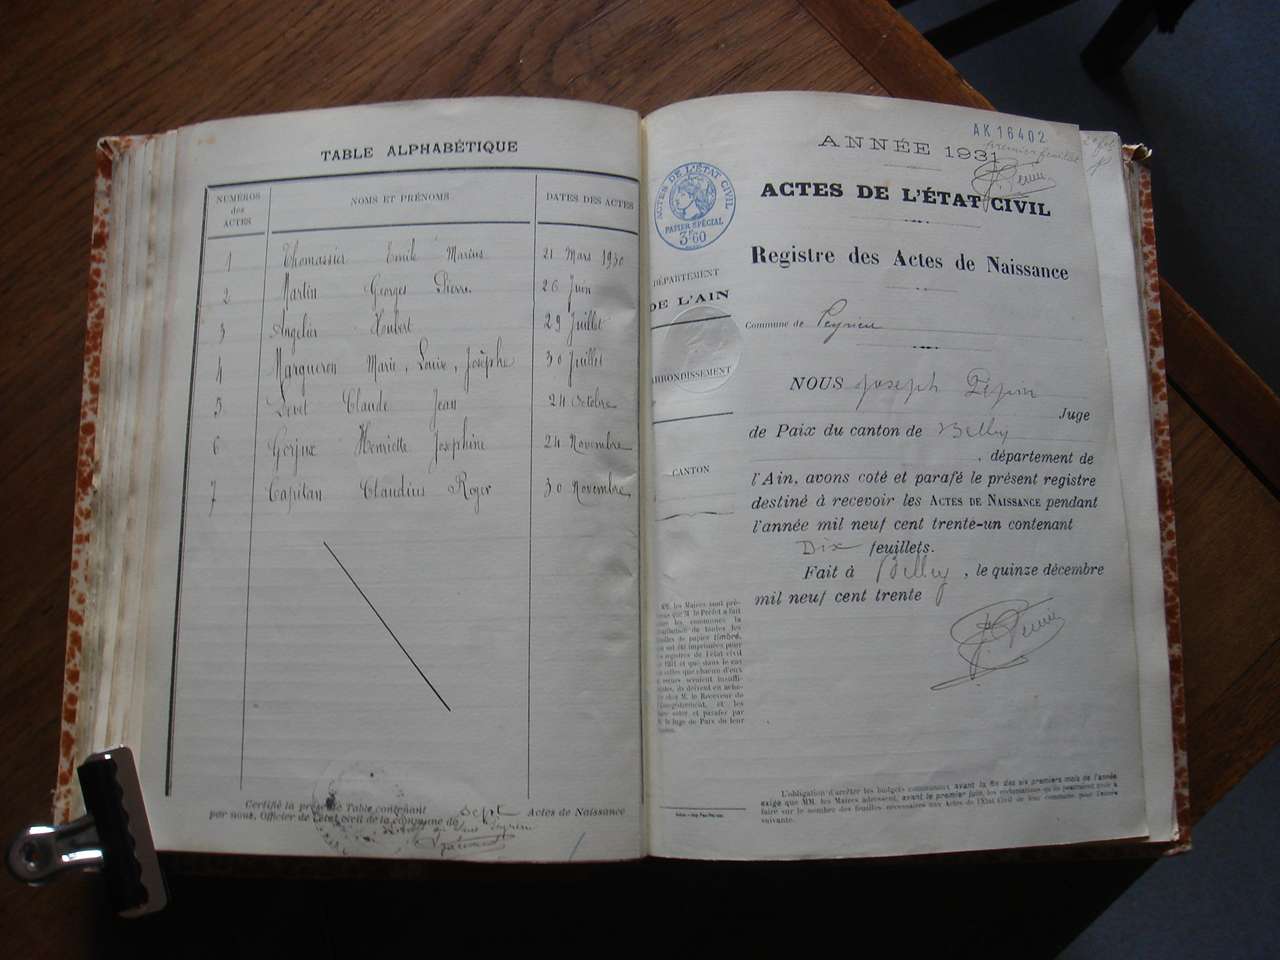 TABLE ALPHABÉTIQUE
NUMÉROS des ACTES
NOMS ET PRÉNOMS
DATES DES ACTES
1 Thomassier Emile Marius 21 Mars 1930
2 Martin Georges Pierre 26 Juin
3 Angelier Hubert 29 Juillet
4 Margueron Marie, Louise, Josèphe 30 Juillet
5 Claude Jean 24 Octobre
6 Gorjux Henriette Joséphine 24 Novembre
7 Capitan Claudius Roger 30 Novembre
Certifié la présente Table contenant Sept Actes de Naissance
par nous, Officier de l'état civil de la commune de Peyrieu
AK 16402
premier feuillet
ANNÉE 1931
ACTES DE L'ÉTAT CIVIL
PAPIER SPÉCIAL
3F60
ACTES DE L'ÉTAT CIVIL
Registre des Actes de Naissance
DÉPARTEMENT
DE L'AIN
Commune de Peyrieu
ARRONDISSEMENT
CANTON
NOUS Joseph Pépin
Juge
de Paix du canton de Belley
, département de
l'Ain, avons coté et parafé le présent registre
destiné à recevoir les ACTES DE NAISSANCE pendant
l'année mil neuf cent trente-un contenant
Dix feuillets.
Fait à Belley, le quinze décembre
mil neuf cent trente
L'obligation d'arrêter les budgets communaux avant la fin des six premiers mois de l'année
exige que MM. les Maires adressent, avant le premier juin, les réclamations qu'ils pourraient avoir à
faire sur le nombre des feuilles nécessaires aux Actes de l'État Civil de leur commune pour l'année
suivante.